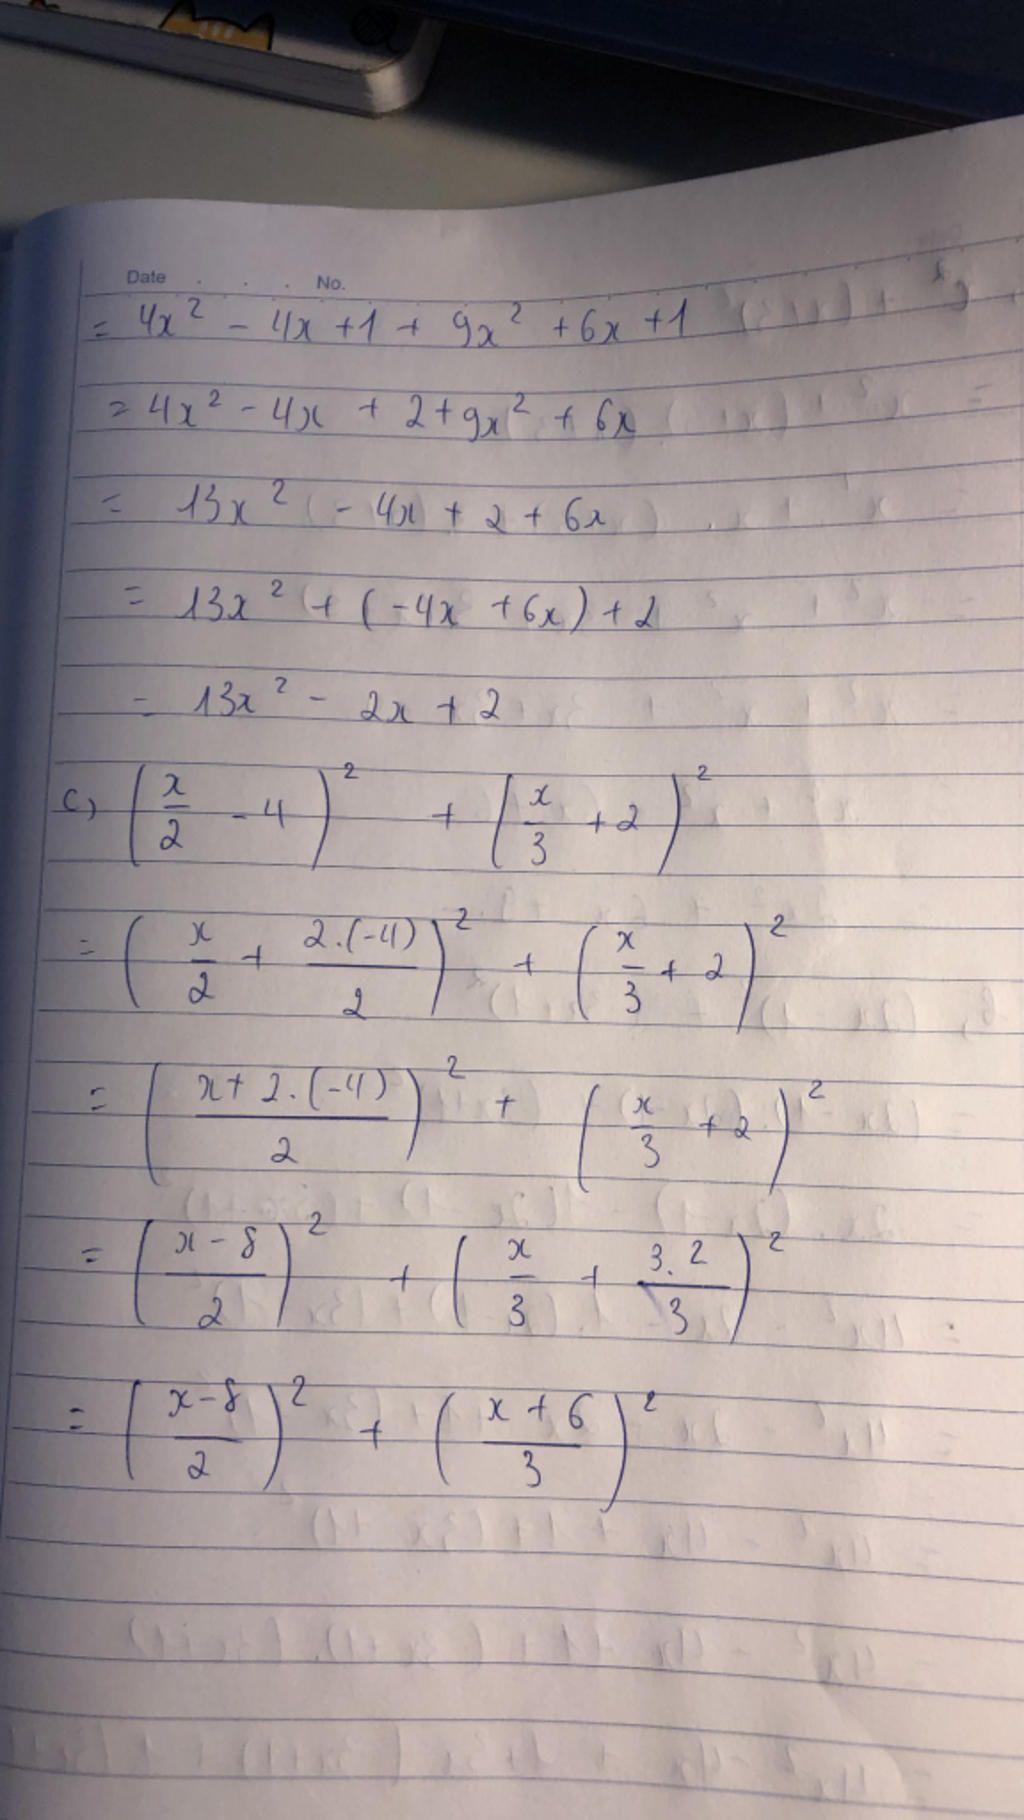 Date . . . No.
= 4x² - 4x + 1 + 9x² + 6x + 1
= 4x² - 4x + 2 + 9x² + 6x
= 13x² - 4x + 2 + 6x
= 13x² + (-4x + 6x) + 2
= 13x² - 2x + 2
c, (x/2 - 4)² + (x/3 + 2)²
= (x/2 + 2.(-4)/2)² + (x/3 + 2)²
= ((x + 2.(-4))/2)² + (x/3 + 2)²
= ((x - 8)/2)² + (x/3 + 3.2/3)²
= ((x - 8)/2)² + ((x + 6)/3)²